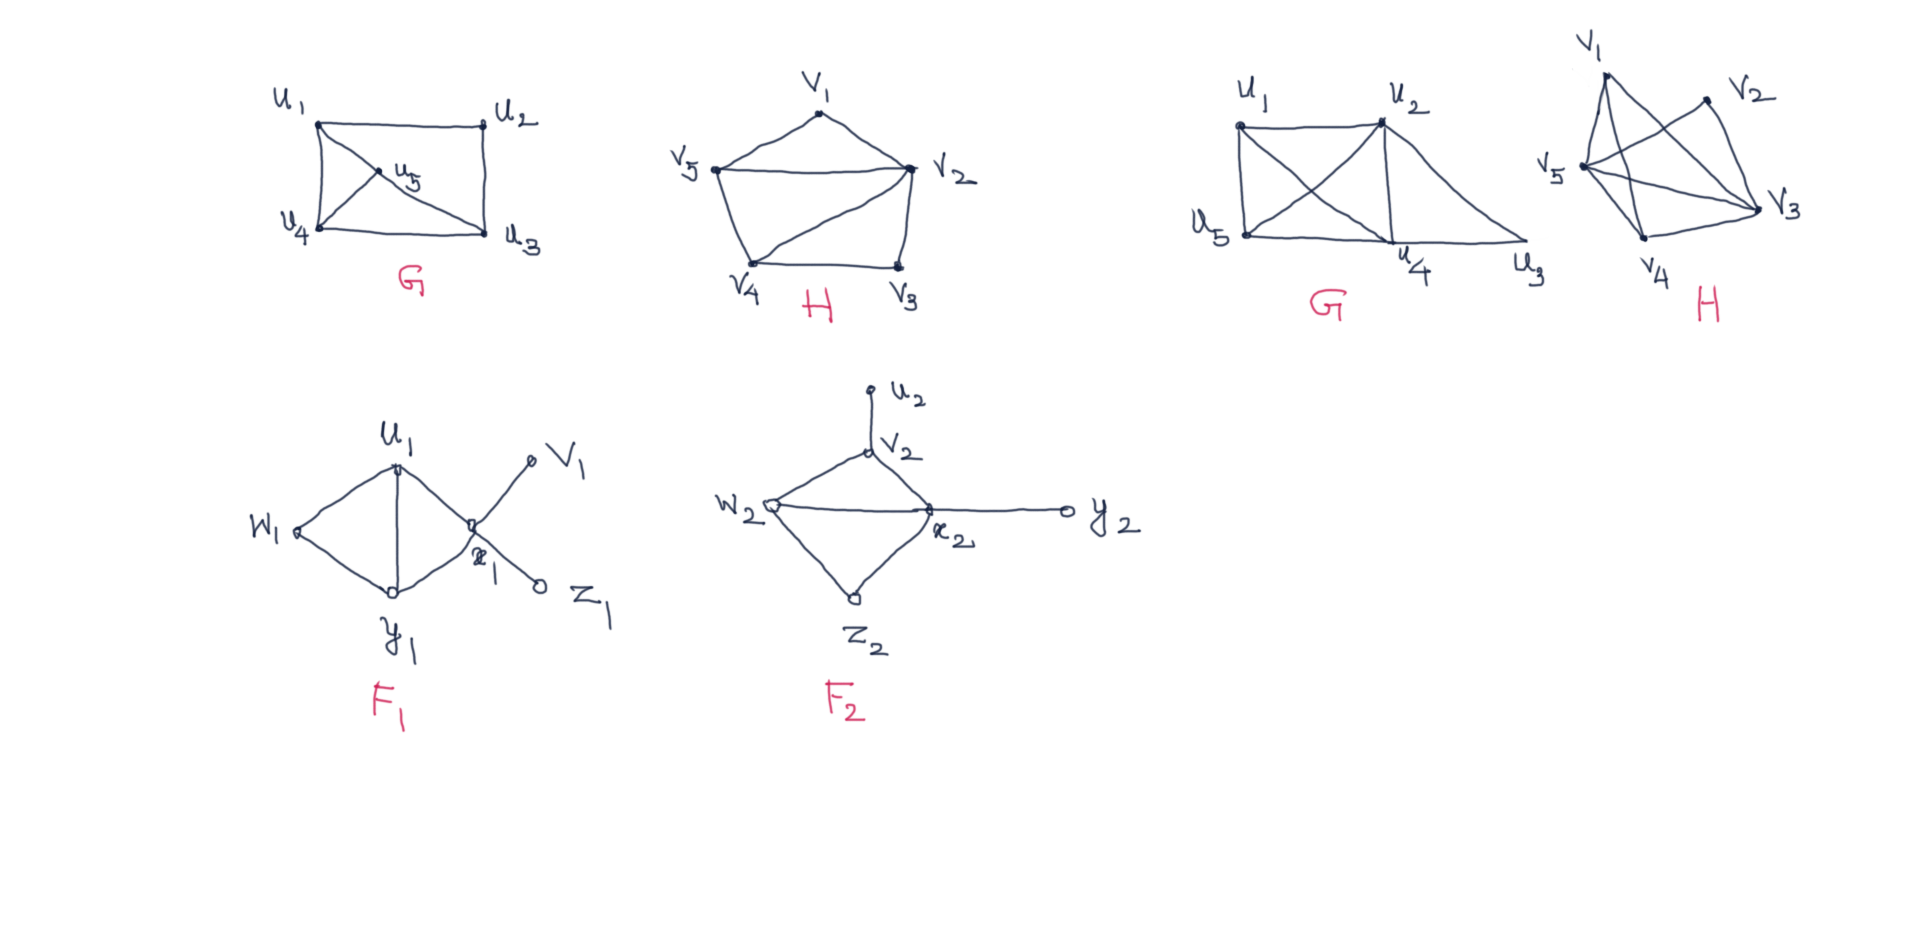 u₁ u₂ u₅ u₄ u₃
G
v₁ v₅ v₂ v₄ v₃
H
u₁ u₂ u₅ u₄ u₃
G
v₁ v₂ v₅ v₃ v₄
H
u₁ v₁ w₁ x₁ z₁ y₁
F₁
u₂ v₂ w₂ x₂ y₂ z₂
F₂